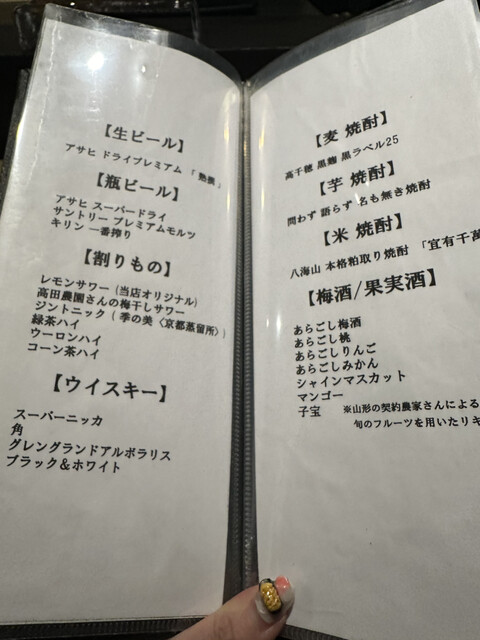 【生ビール】
アサヒ ドライプレミアム 「 熟撰 」
【瓶ビール】
アサヒ スーパードライ
サントリー プレミアムモルツ
キリン 一番搾り
【割りもの】
レモンサワー (当店オリジナル)
高田農園さんの梅干しサワー
ジントニック ( 季の美〈京都蒸留所〉)
緑茶ハイ
ウーロンハイ
コーン茶ハイ
【ウイスキー】
スーパーニッカ
角
グレングランドアルボラリス
ブラック＆ホワイト
【麦 焼酎】
高千穂 黒麹 黒ラベル25
【芋 焼酎】
問わず 語らず 名も無き焼酎
【米 焼酎】
八海山 本格粕取り焼酎 「宜有千萬
【梅酒/果実酒】
あらごし梅酒
あらごし桃
あらごしりんご
あらごしみかん
シャインマスカット
マンゴー
子宝 ※山形の契約農家さんによる
旬のフルーツを用いたリキ